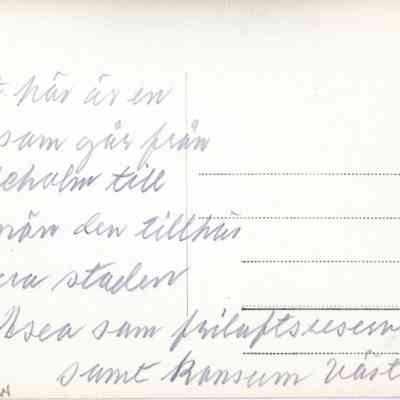 här är en
som går från
holm till
den tillhör
staden
som friluftsreserv
samt Konsum Väst